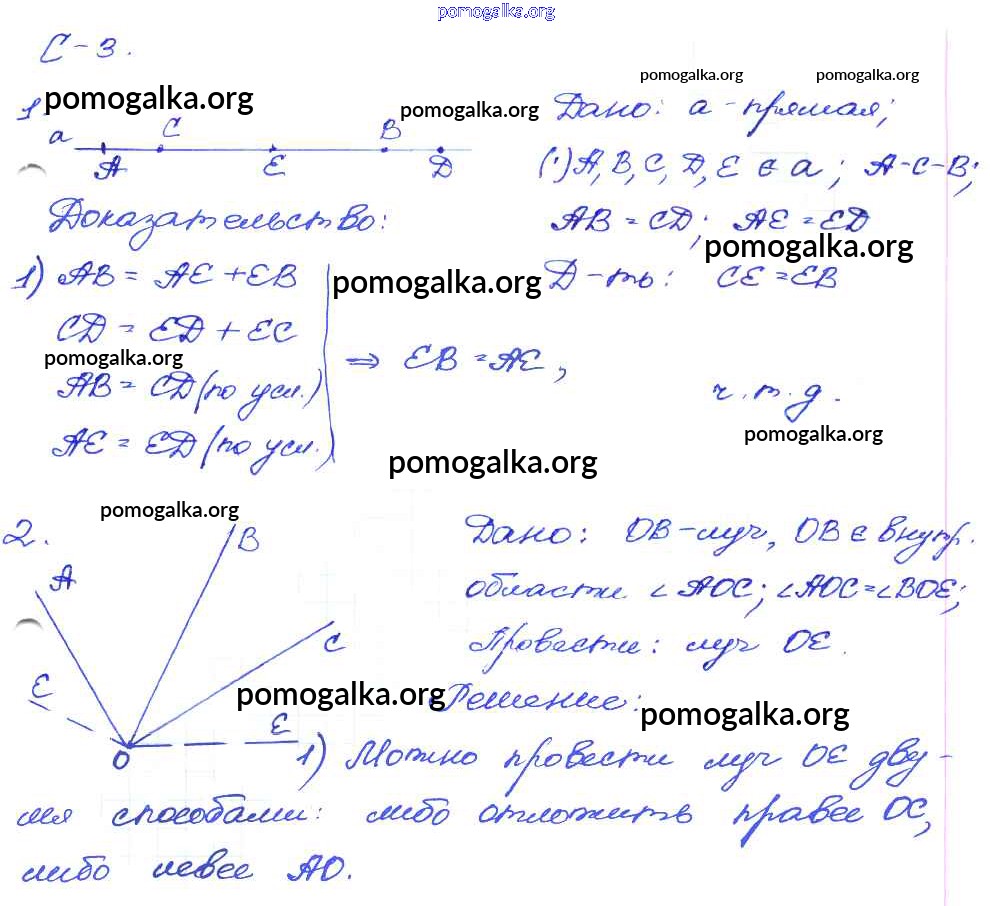 pomogalka.org
С-3.
pomogalka.org pomogalka.org
1. pomogalka.org pomogalka.org Дано: a - прямая;
a C B
A E D (·) A, B, C, D, E ∈ a; A-C-B;
Доказательство: AB = CD; AE = ED
pomogalka.org
1) AB = AE + EB pomogalka.org Д-ть: CE = EB
CD = ED + EC
pomogalka.org ⇒ EB = AE,
AB = CD (по усл.) ч.т.д.
AE = ED (по усл.) pomogalka.org
pomogalka.org
pomogalka.org
2. B Дано: OB - луч, OB ∈ внутр.
A области ∠AOC; ∠AOC = ∠BOE;
C Провести: луч OE.
E pomogalka.org Решение:
E pomogalka.org
O 1) Можно провести луч OE дву-
мя способами: либо отложить правее OC,
либо левее AO.